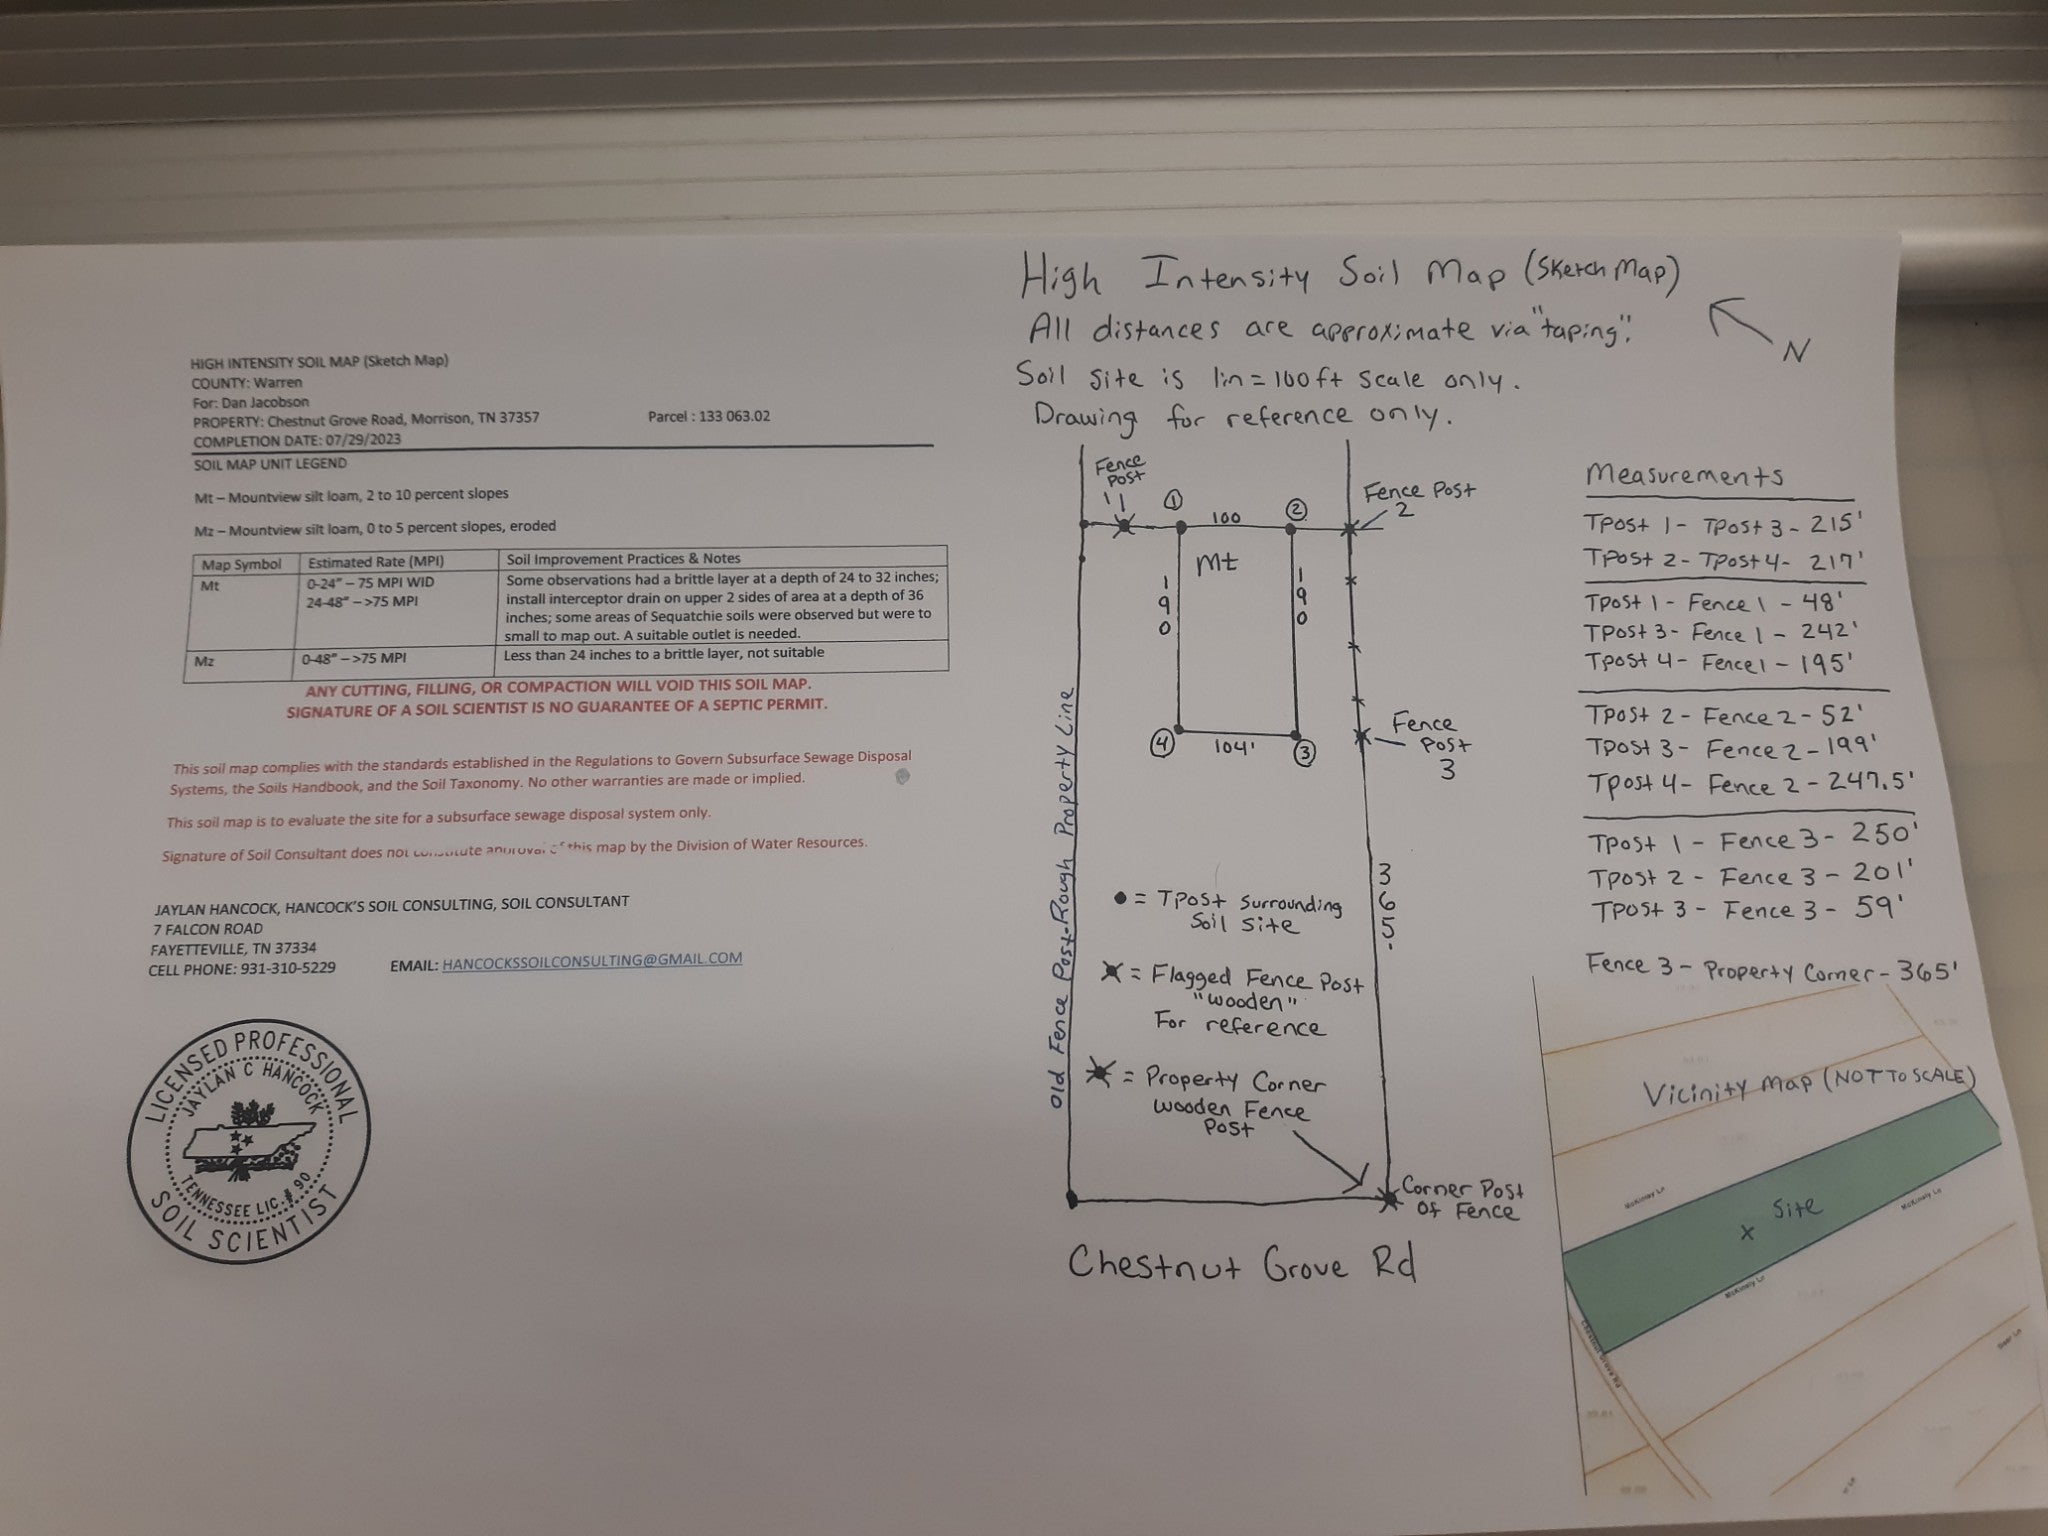 HIGH INTENSITY SOIL MAP (Sketch Map)
COUNTY: Warren
For: Dan Jacobson
PROPERTY: Chestnut Grove Road, Morrison, TN 37357 Parcel : 133 063.02
COMPLETION DATE: 07/29/2023
SOIL MAP UNIT LEGEND
Mt – Mountview silt loam, 2 to 10 percent slopes
Mz – Mountview silt loam, 0 to 5 percent slopes, eroded
Map Symbol Estimated Rate (MPI) Soil Improvement Practices & Notes
Mt 0-24" – 75 MPI WID Some observations had a brittle layer at a depth of 24 to 32 inches;
24-48" – >75 MPI install interceptor drain on upper 2 sides of area at a depth of 36
inches; some areas of Sequatchie soils were observed but were to
small to map out. A suitable outlet is needed.
Mz 0-48" – >75 MPI Less than 24 inches to a brittle layer, not suitable
ANY CUTTING, FILLING, OR COMPACTION WILL VOID THIS SOIL MAP.
SIGNATURE OF A SOIL SCIENTIST IS NO GUARANTEE OF A SEPTIC PERMIT.
This soil map complies with the standards established in the Regulations to Govern Subsurface Sewage Disposal
Systems, the Soils Handbook, and the Soil Taxonomy. No other warranties are made or implied.
This soil map is to evaluate the site for a subsurface sewage disposal system only.
Signature of Soil Consultant does not constitute approval of this map by the Division of Water Resources.
JAYLAN HANCOCK, HANCOCK'S SOIL CONSULTING, SOIL CONSULTANT
7 FALCON ROAD
FAYETTEVILLE, TN 37334
CELL PHONE: 931-310-5229 EMAIL: HANCOCKSSOILCONSULTING@GMAIL.COM
LICENSED PROFESSIONAL
JAYLAN C HANCOCK
TENNESSEE LIC. # 90
SOIL SCIENTIST
High Intensity Soil Map (Sketch Map)
All distances are approximate via "taping".
N
Soil site is 1in = 100ft scale only.
Drawing for reference only.
Fence
Post
1
1
2
100
Fence Post
2
Mt
190
190
4
104'
3
Fence
Post
3
Old Fence Post-Rough Property Line
365'
= TPost surrounding
Soil site
= Flagged Fence Post
"wooden"
For reference
= Property Corner
wooden Fence
Post
Corner Post
Of Fence
Chestnut Grove Rd
Measurements
TPost 1 - TPost 3 - 215'
TPost 2 - TPost 4 - 217'
TPost 1 - Fence 1 - 48'
TPost 3 - Fence 1 - 242'
TPost 4 - Fence 1 - 195'
TPost 2 - Fence 2 - 52'
TPost 3 - Fence 2 - 199'
TPost 4 - Fence 2 - 247.5'
TPost 1 - Fence 3 - 250'
TPost 2 - Fence 3 - 201'
TPost 3 - Fence 3 - 59'
Fence 3 - Property Corner - 365'
Vicinity Map (NOT TO SCALE)
McKinley Ln
x Site
McKinely Ln
McKinely Ln
Chestnut Grove Rd